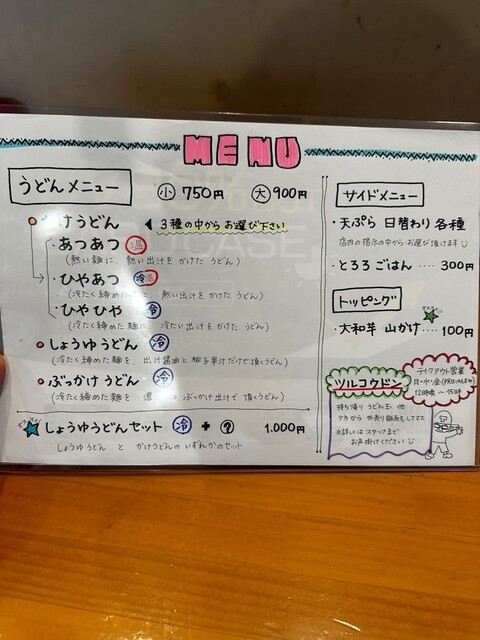 MENU
うどんメニュー
小 750円 大 900円
かけうどん ◀ 3種の中からお選び下さい
・あつあつ 温
(熱い麺に、熱い出汁をかけた うどん)
・ひやあつ 冷温
(冷たく締めた 熱い出汁をかけた うどん)
・ひやひや 冷
(冷たく締めた麺に、冷たい出汁をかけた うどん)
しょうゆうどん 冷
(冷たく締めた麺を、出汁醤油と柚子果汁だけで頂くうどん)
ぶっかけうどん 冷
(冷たく締めた麺を ぶっかけ出汁で 頂くうどん)
しょうゆうどんセット 冷 + ? 1.000円
しょうゆうどん と かけうどんの いずれかのセット
サイドメニュー
・天ぷら 日替わり 各種
店内の掲示の中からお選び頂けます
・とろろごはん ････ 300円
トッピング
・大和芋 山かけ ････ 100円
ツルコウドン
持ち帰り うどん玉 他
外売り 販売もしてマス
※詳しくは スタッフまで
お声掛けください
テイクアウト営業
12時頃 〜 15時